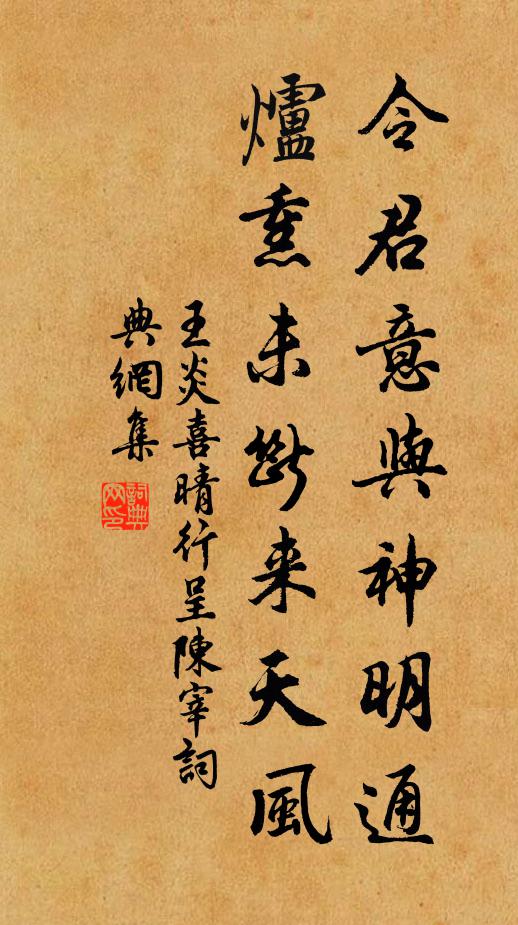 令君意與神明通
爐熏未斷来天風
王炎喜晴行呈陳宰詞
典網集
詞典
网印